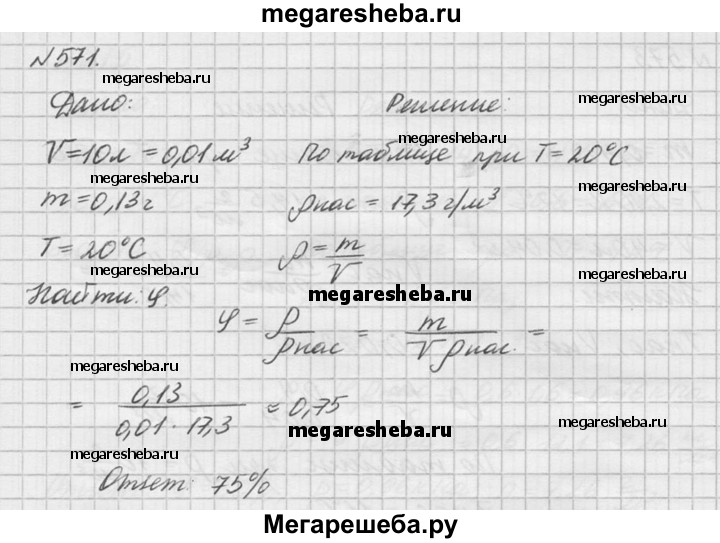 megaresheba.ru
N571.
megaresheba.ru
Дано: Решение:
megaresheba.ru
V=10л =0,01 м³ По таблице при T=20°C
megaresheba.ru
megaresheba.ru
m=0,13г ρнас = 17,3 г/м³
megaresheba.ru
T=20°C ρ = m/V
megaresheba.ru
megaresheba.ru
Найти: φ.
megaresheba.ru
φ = ρ/ρнас = m/Vρнас. =
megaresheba.ru
= 0,13/0,01·17,3 ≈ 0,75
megaresheba.ru
megaresheba.ru
megaresheba.ru
Ответ: 75%
Мегарешеба.ру